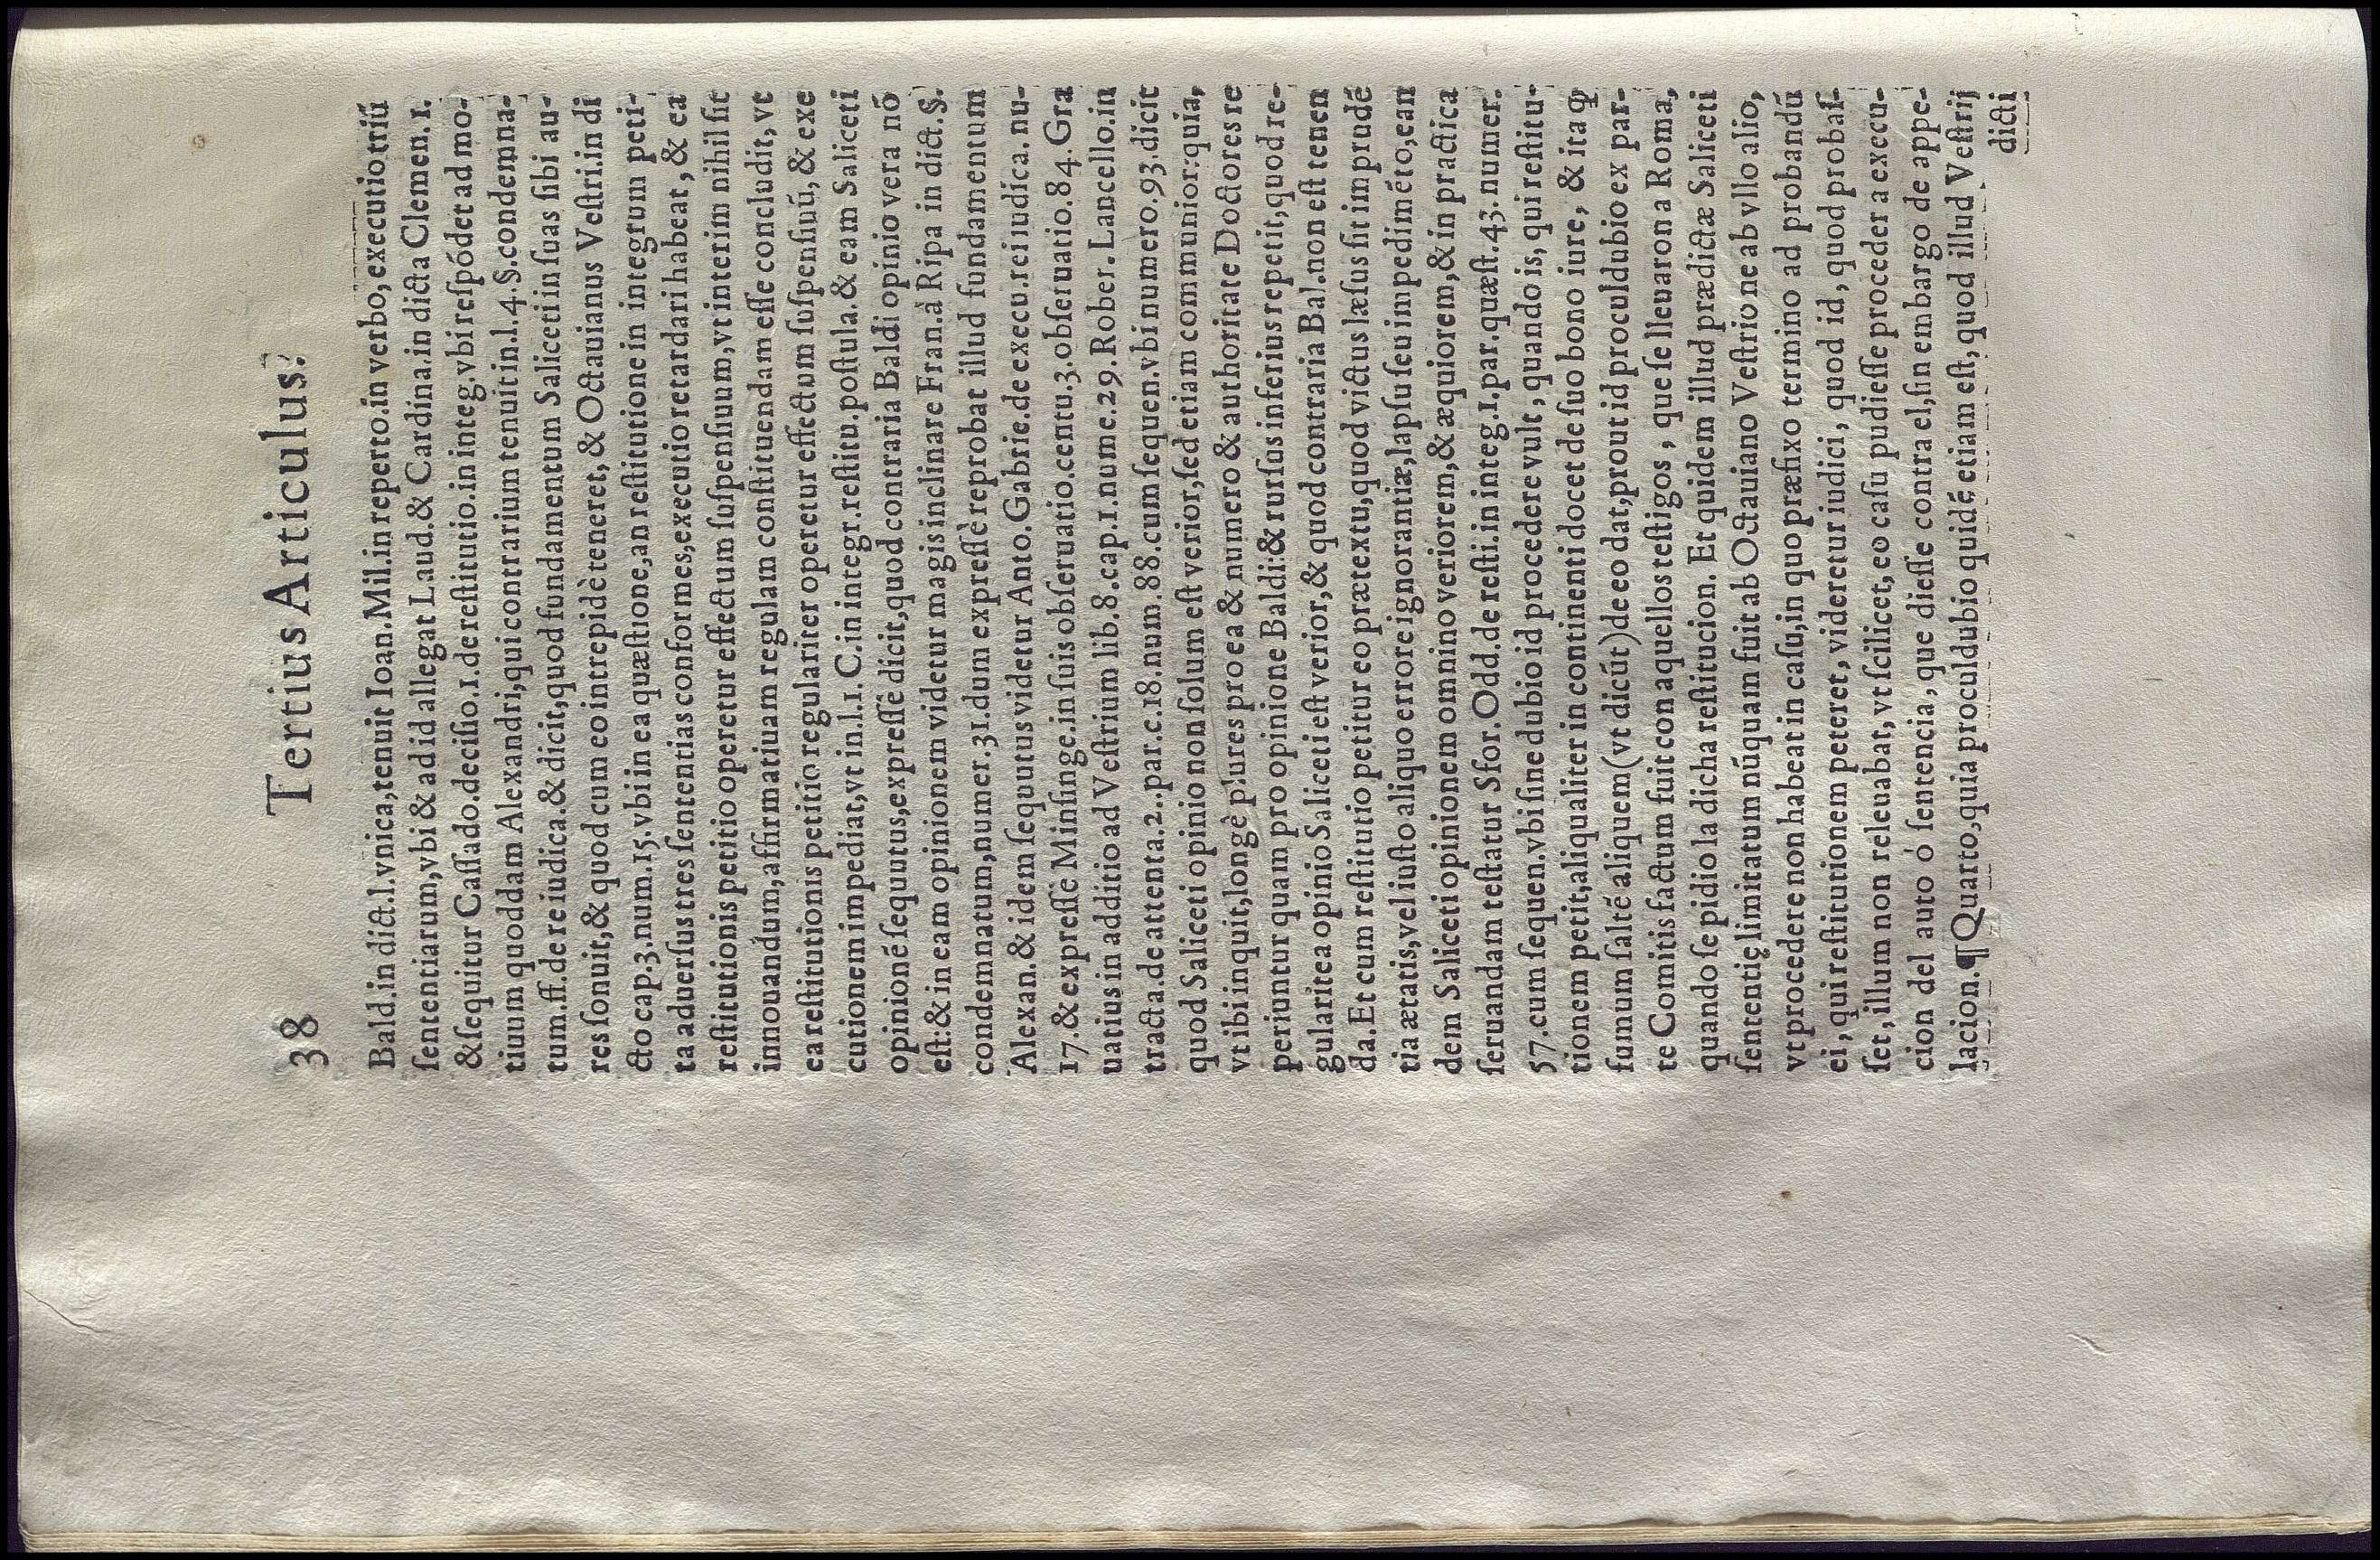 38 Tertius Articulus.
Bald.in dict.l.vnica,tenuit Ioan.Mil.in reperto.in verbo,executio triũ
ſententiarum,vbi & ad id allegat Laud.& Cardina.in dicta Clemen.1.
& ſequitur Caſſado.deciſio.1.de reſtitutio.in integ.vbi reſpõdet ad mo-
tiuum quoddam Alexandri,qui contrarium tenuit in.l.4.§.condemna-
tum.ff.de re iudica.& dicit,quod fundamentum Saliceti in ſuas ſibi au-
res ſonuit,& quod cum eo intrepidè teneret,& Octauianus Veſtri.in di
cto cap.3.num.15.vbi in ea quæſtione,an reſtitutione in integrum peti-
ta aduerſus tres ſententias conformes,executio retardari habeat, & ea
reſtitutionis petitio operetur effectum ſuſpenſiuum,vt interim nihil ſit
innouandum,affirmatiuam regulam conſtituendam eſſe concludit, vt
ea reſtitutionis petitio regulariter operetur effectum ſuſpenſiuũ, & exe
cutionem impediat,vt in.l.1.C.in integr.reſtitu.poſtula.& eam Saliceti
opinionẽ ſequutus,expreſſè dicit,quod contraria Baldi opinio vera nõ
eſt.& in eam opinionem videtur magis inclinare Fran.à Ripa in dict.§.
condemnatum,numer.31.dum expreſſè reprobat illud fundamentum
Alexan.& idem ſequutus videtur Anto.Gabrie.de execu.rei iudica. nu-
17.& expreſſè Minſinge.in ſuis obſeruatio.centu.3.obſeruatio.84.Gra
uatius in additio ad Veſtrium lib.8.cap.1.nume.29.Rober. Lancello.in
tracta.de attenta.2.par.c.18.num.88.cum ſequen.vbi numero.93.dicit
quod Saliceti opinio non ſolum eſt verior,ſed etiam communior:quia,
vt ibi inquit,longè plures pro ea & numero & authoritate Doctores re
periuntur quam pro opinione Baldi:& rurſus inferius repetit,quod re-
gularitea opinio Saliceti eſt verior,& quod contraria Bal.non eſt tenen
da.Et cum reſtitutio petitur eo prætextu,quod victus læſus ſit imprudẽ
tia ætatis,vel iuſto aliquo errore ignorantiæ,lapſu ſeu impedimẽto,ean
dem Saliceti opinionem omnino veriorem,& æquiorem,& in practica
ſeruandam teſtatur Sfor.Odd.de reſti.in integ.1.par.quæſt.43.numer.
57.cum ſequen.vbi ſine dubio id procedere vult , quando is, qui reſtitu-
tionem petit,aliqualiter in continenti docet de ſuo bono iure, & ita ꝙ
fumum ſaltẽ aliquem(vt dicũt)de eo dat,prout id proculdubio ex par-
te Comitis factum fuit con aquellos teſtigos , que ſe lleuaron a Roma,
quando ſe pidio la dicha reſtitucion. Et quidem illud prædictæ Saliceti
ſententię limitatum nũquam fuit ab Octauiano Veſtrio ne ab vllo alio,
vt procedere non habeat in caſu,in quo præfixo termino ad probandũ
ei, qui reſtitutionem peteret, videretur iudici, quod id, quod probaſ-
ſet, illum non releuabat, vt ſcilicet, eo caſu pudieſſe proceder a execu-
cion del auto ó ſentencia, que dieſſe contra el,ſin embargo de appe-
lacion.¶Quarto,quia proculdubio quidẽ etiam eſt, quod illud Veſtrij
dicti